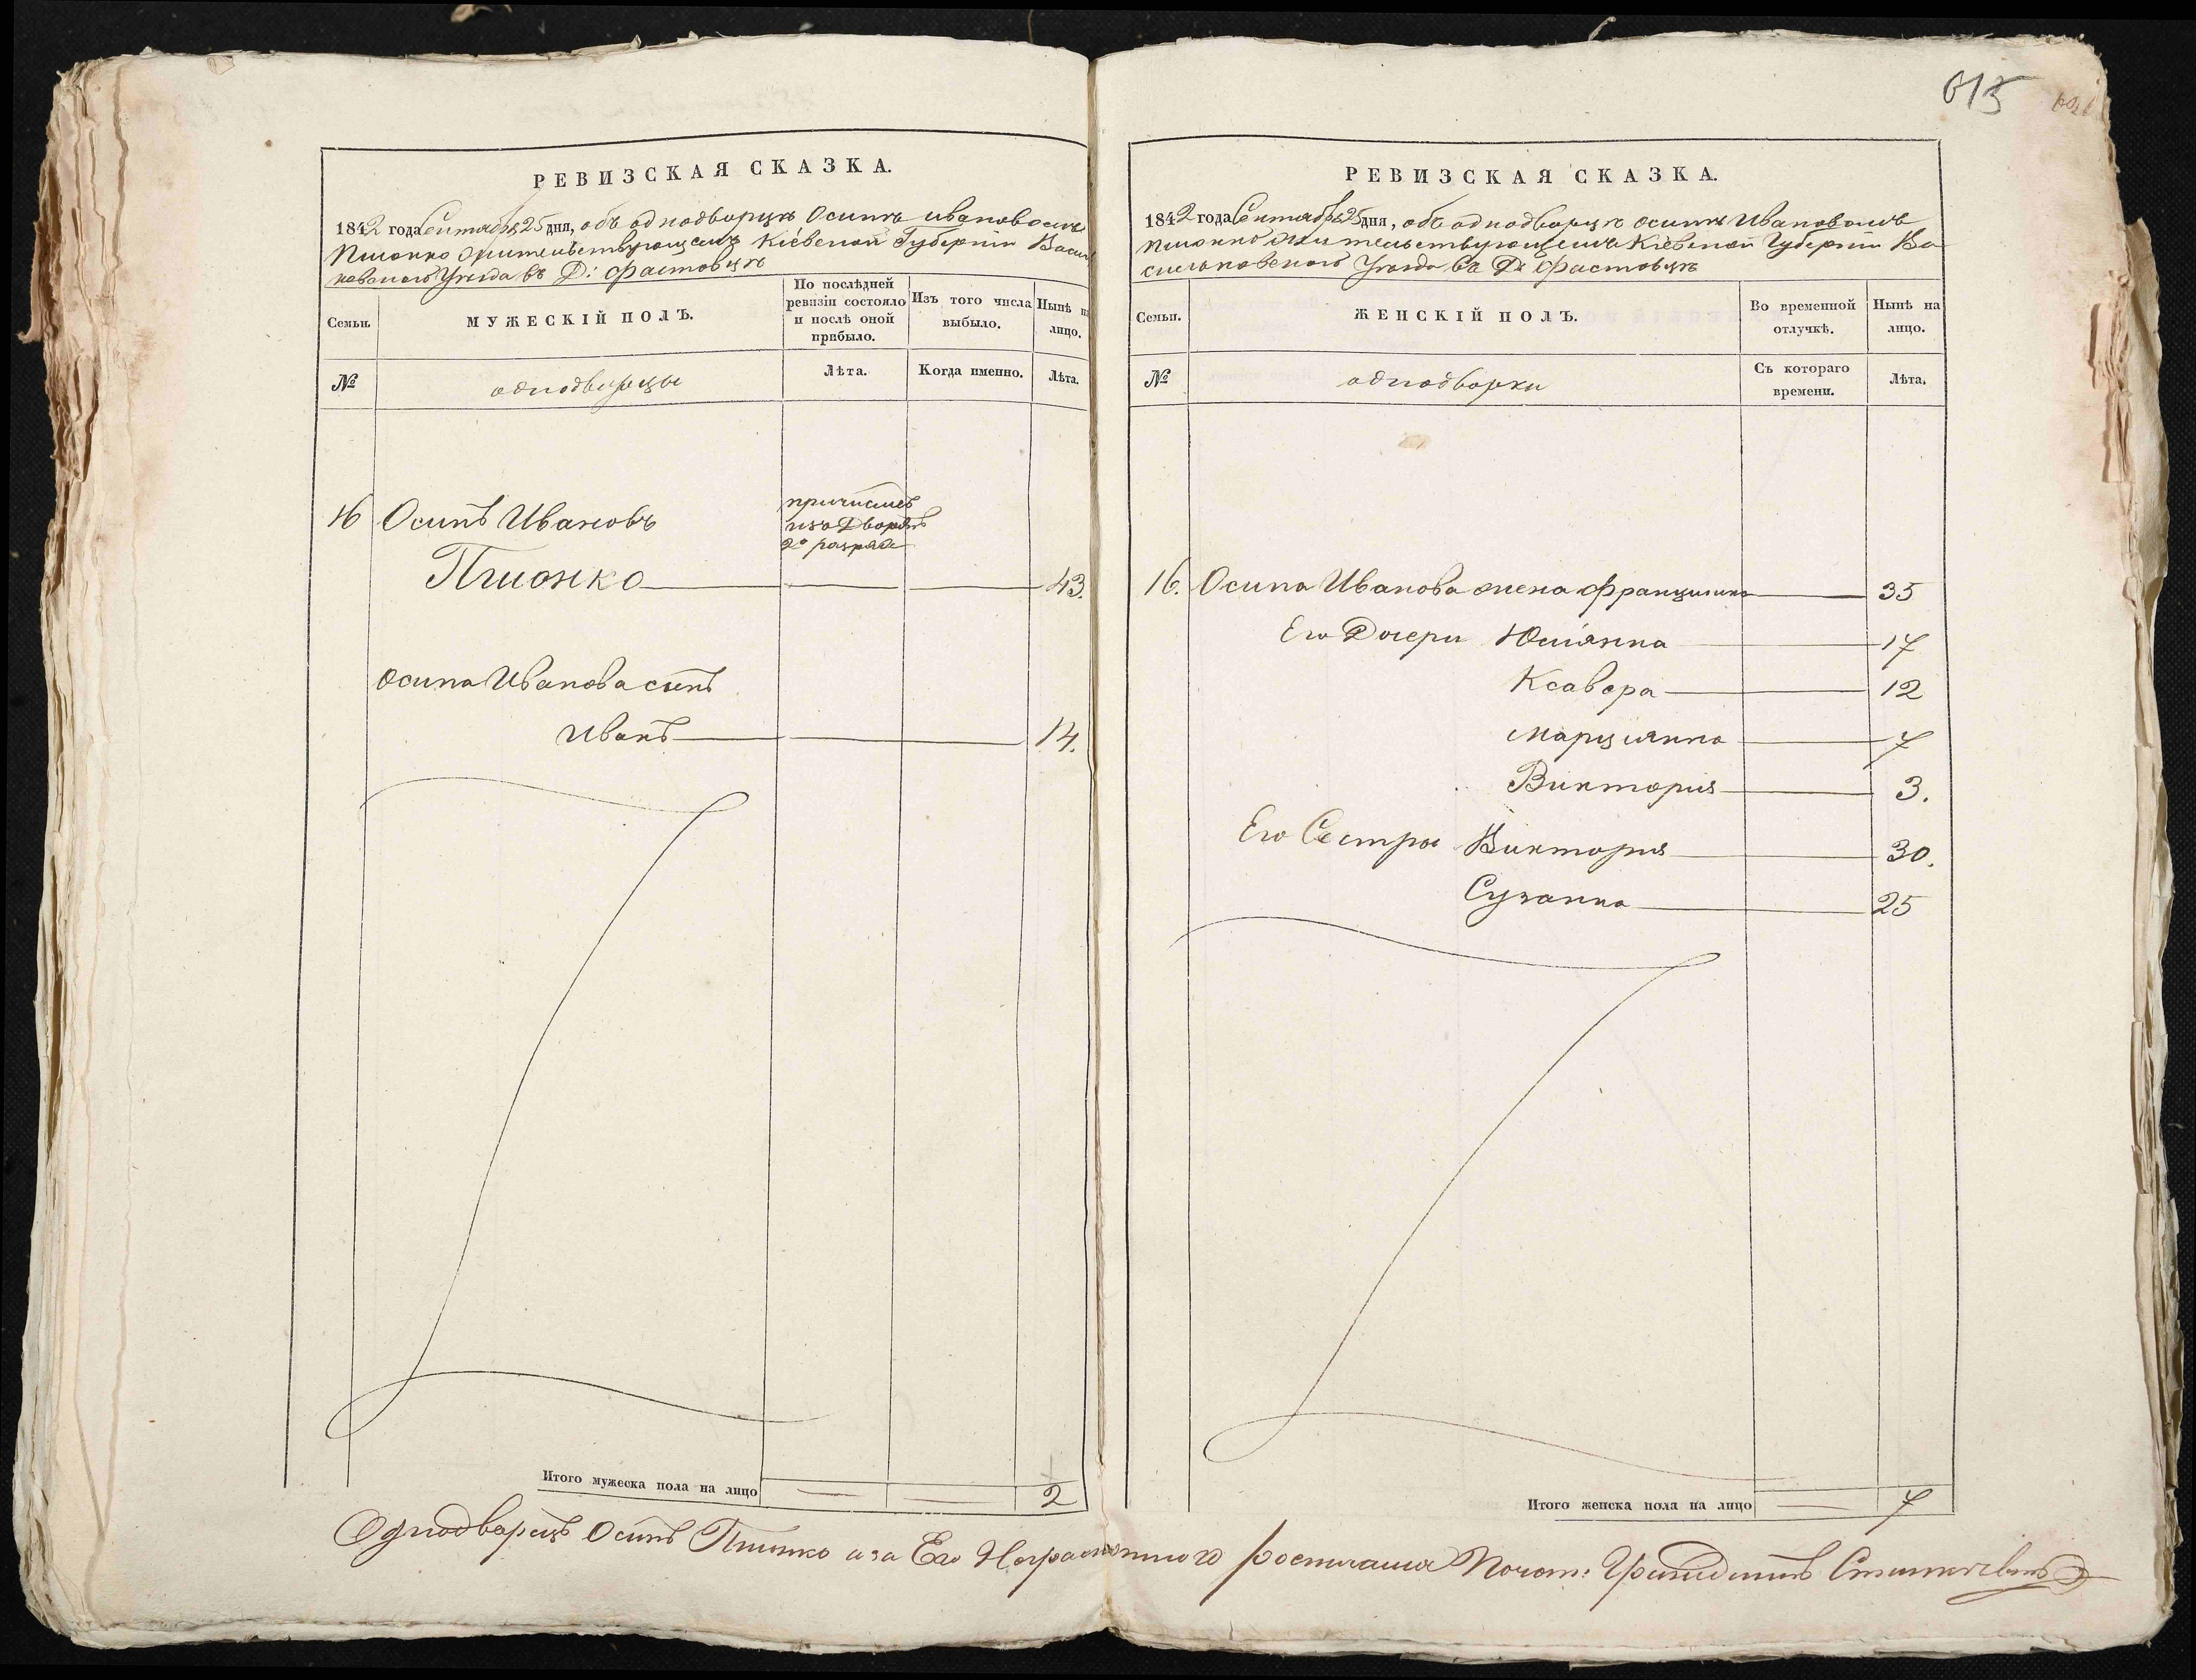 РЕВИЗСКАЯ СКАЗКА.
1842 года Сентября 25 дня, объ однодворцѣ Осипѣ Ивановомъ
жительствующемъ Кіевской Губерніи Василь
ковскаго Уѣзда въ Д: Фастовцѣ
Семьи.
МУЖЕСКІЙ ПОЛЪ.
По послѣдней
ревизіи состояло
и послѣ оной
прибыло.
Изъ того числа
выбыло.
Нынѣ на
лицо.
№
однодворцы
Лѣта.
Когда именно.
Лѣта.
причисленъ
изъ Дворянъ
2го разряда
16 Осипъ Ивановъ
43.
Осипа Иванова сынъ
Иванъ 14.
Итого мужеска пола на лицо 2
615
РЕВИЗСКАЯ СКАЗКА.
1842 года Сентября 25 дня, объ однодворцѣ Осипѣ Ивановомъ
жительствующемъ Кіевской Губерніи Ва-
сильковскаго Уѣзда въ Д: Фастовцѣ
Семьи.
ЖЕНСКІЙ ПОЛЪ.
Во временной
отлучкѣ.
Нынѣ на
лицо.
№
однодворки
Съ котораго
времени.
Лѣта.
16. Осипа Иванова жена Францишка 35
Его Дочери Юліянна 17
Ксавера 12
Марціянна 7
Викторія 3.
Его Сестры Викторія 30.
Сузанна 25
Итого женска пола на лицо 7
Однодворецъ Осипъ а за Его Неграмотного